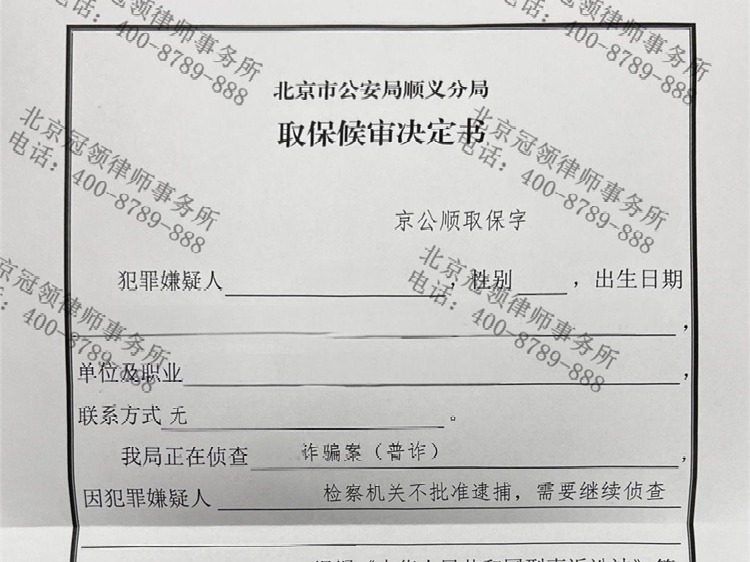 北京冠领律师事务所
电话：400-8789-888
北京市公安局顺义分局
取保候审决定书
北京冠领律师事务所
电话：400-8789-888
北京冠领律师事务所
电话：400-8789-888
京公顺取保字
犯罪嫌疑人，性别，出生日期
，
北京冠领律师事务所
电话：400-8789-888
京冠领律师事务所
：400-8789-888
单位及职业，
联系方式 无。
我局正在侦查 诈骗案（普诈），
因犯罪嫌疑人 检察机关不批准逮捕，需要继续侦查